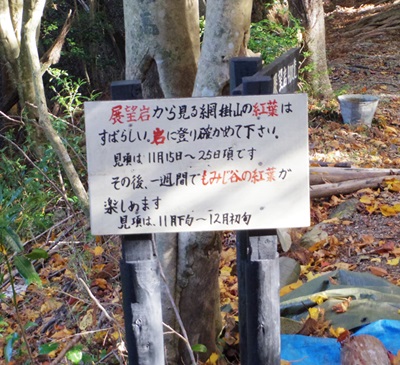 展望岩から見る綱掛山の紅葉は
すばらしい、岩に登り確かめて下さい。
見頃は11月15日〜25日頃です
その後、一週間でもみじ谷の紅葉が
楽しめます
見頃は、11月下旬〜12月初旬